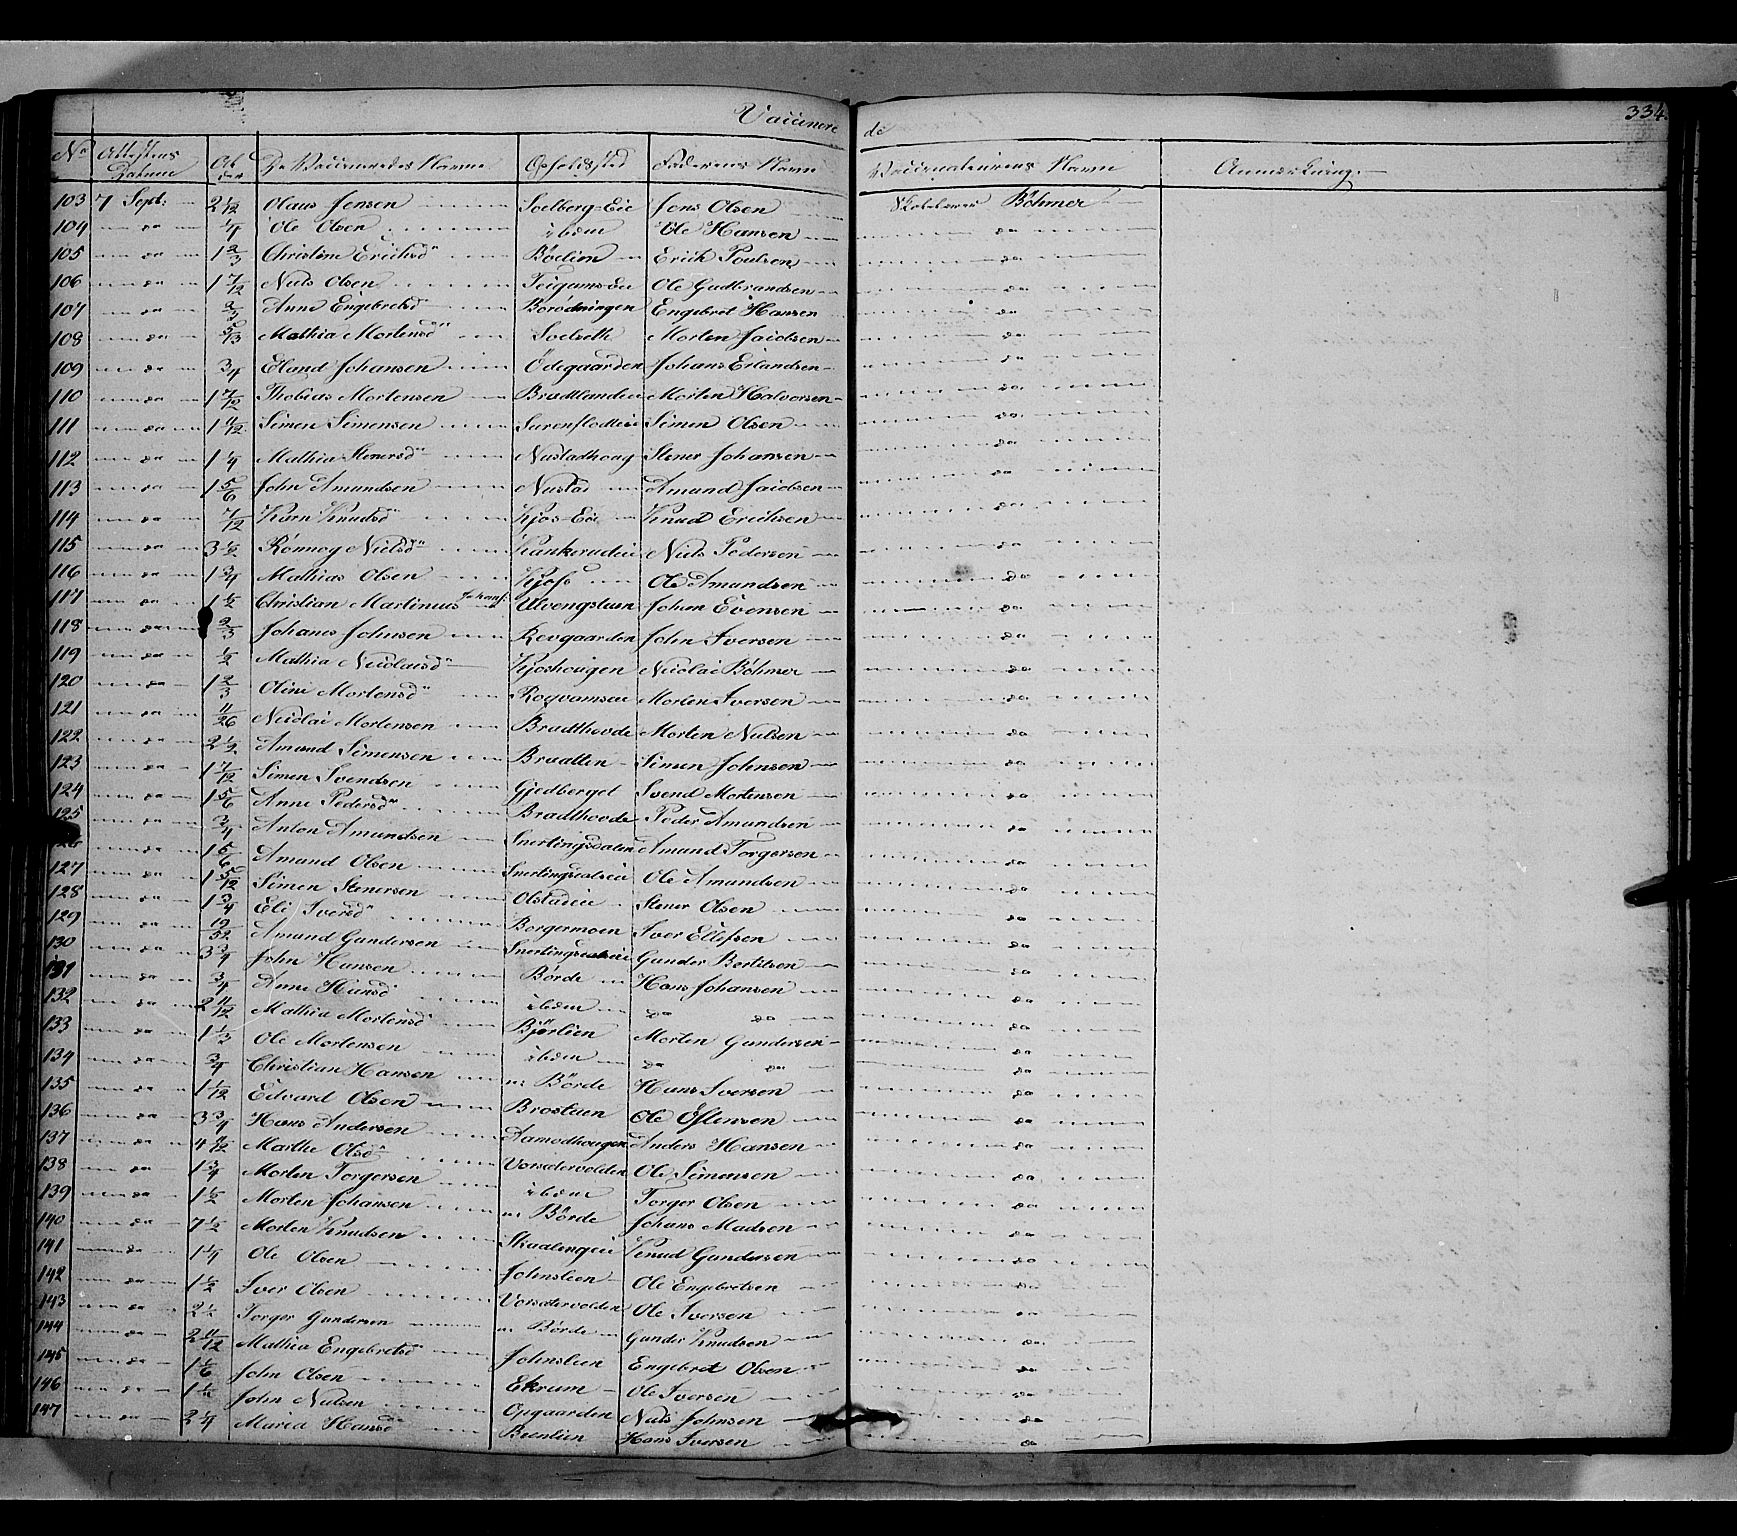 Vaccinere de 334.
No Attestens Datum Alder De Vaccineredes Navne Opholdssted Faderens Navn Vaccinateurens Navn Anmærkning.
103 7 Sept. 2 1/12 Olaus Jensen Soelberg-Eie Jens Olsen Skolelærer Böhmer
104 da 1/4 Ole Olsen ibdm Ole Hansen da
105 da 1 2/3 Christine Erichsd Böelien Erich Poulsen da
106 da 1 7/12 Niels Olsen Ole Gudbrandsen da
107 da 2/3 Anne Engebretsd Engebret Hansen da
108 da Mathia Mortensd Soelseth Morten Jacobsen da
109 da 3/4 Eland Johansen Ödegaarden Johans Erlandsen da
110 da 1 7/12 Thobias Mortensen Bradtlandeie Morten Halvorsen da
111 da 1 11/12 Simen Simensen Simen Olsen da
112 da 1 1/4 Mathia Stenersd Nustadhoug Stener Johansen da
113 da 1 5/6 John Amundsen Nustad Amund Jacobsen da
114 da 7/12 Karn Knudsd Kjos-Eie Knud Erichsen da
115 da 3 1/2 Rønnog Nielsd Kankerudeie Niels Pedersen da
116 da 1 3/4 Mathias Olsen Kjos Ole Amundsen da
117 da 1 1/2 Christian Martinius Johans: Ulvengsteen Johan Evensen da
118 da 2/3 Johanes Johnsen Revgaarden John Iversen da
119 da 1/2 Mathia Nicolaisd Kjoshougen Nicolai Böhmer da
120 da 1 2/3 Oline Mortensd Rogvamseie Morten Iversen da
121 da 11/26 Nicolai Mortensen Bradthovde Morten Nielsen da
122 da 2 1/2 Amund Simensen Braatten Simen Johnsen da
123 da 1 7/12 Simen Svendsen Gjedberget Svend Mortensen da
124 da 1 5/6 Anne Pedersd Bradthovde Peder Amundsen da
125 da 3/4 Anton Amundsen Snertingsdalen Amund Torgersen da
126 da 1 5/6 Amund Olsen Snertingsdalseie Ole Amundsen da
127 da 1 5/12 Simen Stenersen Olstadeie Stener Olsen da
128 da 1 3/4 Eli Iversd Borgermoen Iver Ellefsen da
129 da 19/52 Amund Gundersen Snertingsdalseie Gunder Bertilsen da
130 da 3 3/4 John Hansen Børde Hans Johansen da
131 da 3/4 Anne Hansd ibdm da da da
132 da 2 11/12 Mathia Mortensd Bjørlien Morten Gundersen da
133 da 1 1/3 Ole Mortensen ibdm da da da
134 da 3/4 Christian Hansen Børde Hans Iversen da
135 da 1 1/12 Edvard Olsen Brosteen Ole Østensen da
136 da 3 3/4 Hans Andersen Aamodhougen Anders Hansen da
137 da 4 Marthe Olsd Vorsætervolden Ole Simensen da
138 da 1 3/4 Morten Torgersen ibdm Torger Olsen da
139 da 1 1/2 Morten Johansen Børde Johans Madsen da
140 da 7 1/2 Morten Knudsen Knud Gundersen da
141 da 1 1/4 Ole Olsen Johnsleen Ole Engebretsen da
142 da 1 1/2 Iver Olsen Vorsætervolden Ole Iversen da
143 da 2 1/2 Torger Gundersen Børde Gunder Knudsen da
144 da 2 11/12 Mathia Engebretsd Johnsleen Engebret Olsen da
145 da 1 1/6 John Olsen Ekrum Ole Iversen da
146 da 1 1/2 John Nielsen Opgaarden Niels Johnsen da
147 da 2 1/4 Maria Hansd Hans Iversen da